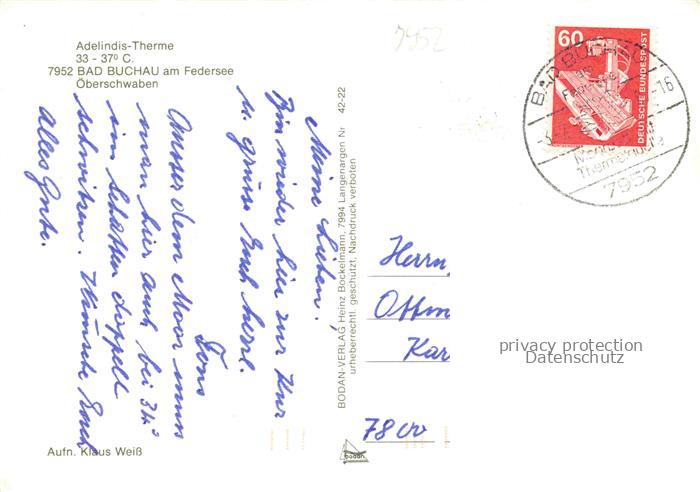 Adelindis-Therme
33 - 37º C.
7952 BAD BUCHAU am Federsee
Oberschwaben
7952
Meine Lieben,
Bin wieder hier zur Kur
u. grüsse Euch herzl.
Toni
Ausser dem Moor muss
man hier auch bei 34°
im Schatten doppelt
schwitzen. Wünsche Euch
alles Gute.
BODAN-VERLAG Heinz Bockelmann, 7994 Langenargen Nr 42-22
urheberrechtl. geschützt, Nachdruck verboten
60
DEUTSCHE BUNDESPOST
BAD BUCHAU
-16
Thermalquelle
7952
Herrn
Ottm
Kar
7800
privacy protection
Datenschutz
Aufn. Klaus Weiß
bodan